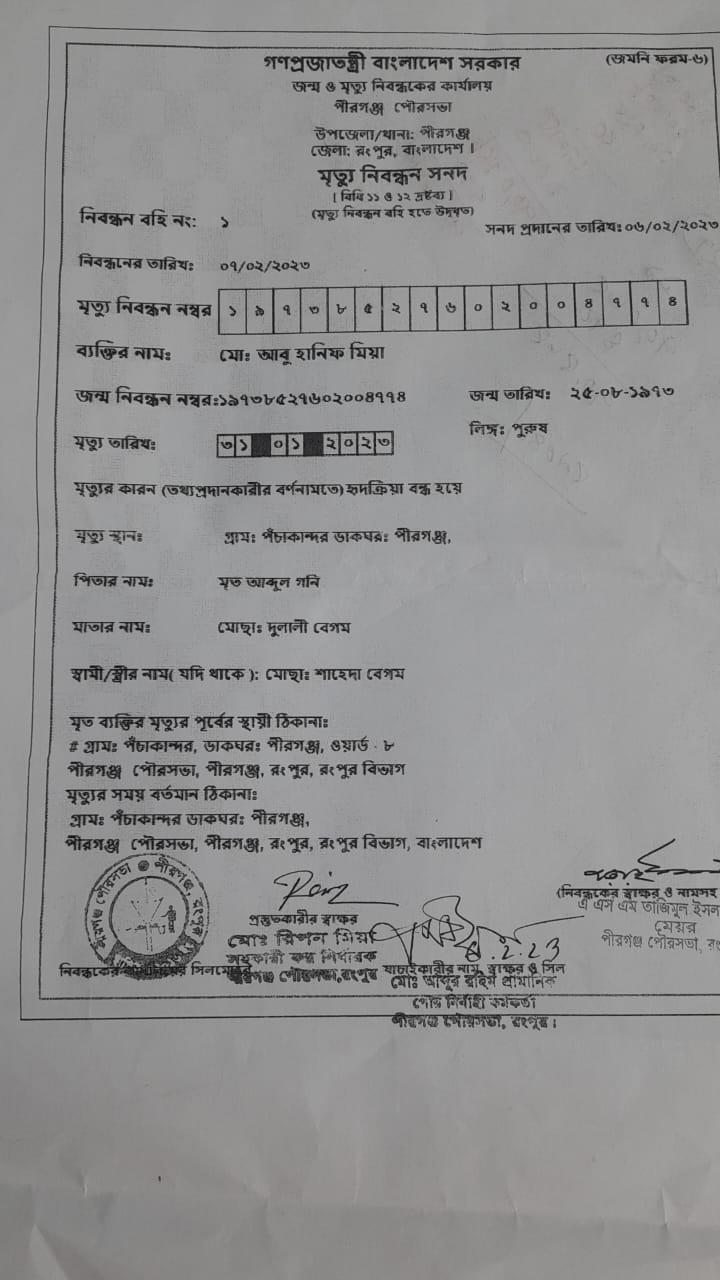 গণপ্রজাতন্ত্রী বাংলাদেশ সরকার
(জমনি ফরম-৬)
জন্ম ও মৃত্যু নিবন্ধকের কার্যালয়
পীরগঞ্জ পৌরসভা
উপজেলা/থানা: পীরগঞ্জ
জেলা: রংপুর, বাংলাদেশ ।
মৃত্যু নিবন্ধন সনদ
[ বিধি ১১ ও ১২ দ্রষ্টব্য ]
(মৃত্যু নিবন্ধন বহি হতে উদ্ধৃত)
নিবন্ধন বহি নং: ১
সনদ প্রদানের তারিখ: ০৬/০২/২০২৩
নিবন্ধনের তারিখ: ০৭/০২/২০২৩
মৃত্যু নিবন্ধন নম্বর ১ ৯ ৭ ৩ ৮ ৫ ২ ৭ ৬ ০ ২ ০ ০ ৪ ৭ ৭ ৪
ব্যক্তির নাম: মো: আবু হানিফ মিয়া
জন্ম নিবন্ধন নম্বর:১৯৭৩৮৫২৭৬০২০০৪৭৭৪ জন্ম তারিখ: ২৫-০৮-১৯৭৩
মৃত্যু তারিখ: ৩১ ০১ ২০২৩ লিঙ্গ: পুরুষ
মৃত্যুর কারন (তথ্যপ্রদানকারীর বর্ণনামতে) হৃদক্রিয়া বন্ধ হয়ে
মৃত্যু স্থান: গ্রাম: পঁচাকান্দর ডাকঘর: পীরগঞ্জ,
পিতার নাম: মৃত আব্দুল গনি
মাতার নাম: মোছা: দুলালী বেগম
স্বামী/স্ত্রীর নাম( যদি থাকে ): মোছা: শাহেদা বেগম
মৃত ব্যক্তির মৃত্যুর পূর্বের স্থায়ী ঠিকানা:
# গ্রাম: পঁচাকান্দর, ডাকঘর: পীরগঞ্জ, ওয়ার্ড - ৮
পীরগঞ্জ পৌরসভা, পীরগঞ্জ, রংপুর, রংপুর বিভাগ
মৃত্যুর সময় বর্তমান ঠিকানা:
গ্রাম: পঁচাকান্দর ডাকঘর: পীরগঞ্জ,
পীরগঞ্জ পৌরসভা, পীরগঞ্জ, রংপুর, রংপুর বিভাগ, বাংলাদেশ
(নিবন্ধকের স্বাক্ষর ও নামসহ
এ এস এম তাজিমুল ইসল
মেয়র
পীরগঞ্জ পৌরসভা, রং
প্রস্তুতকারীর স্বাক্ষর
মোঃ রিপন মিয়া
সহকারী কর নির্ধারক
পীরগঞ্জ পৌরসভা, রংপুর
6.2.23
যাচাইকারীর নাম, স্বাক্ষর ও সিল
মোঃ আব্দুর রহিম প্রামানিক
পৌর নির্বাহী কর্মকর্তা
পীরগঞ্জ পৌরসভা, রংপুর ।
পীরগঞ্জ পৌরসভা ● পীরগঞ্জ, রংপুর
নিবন্ধকের